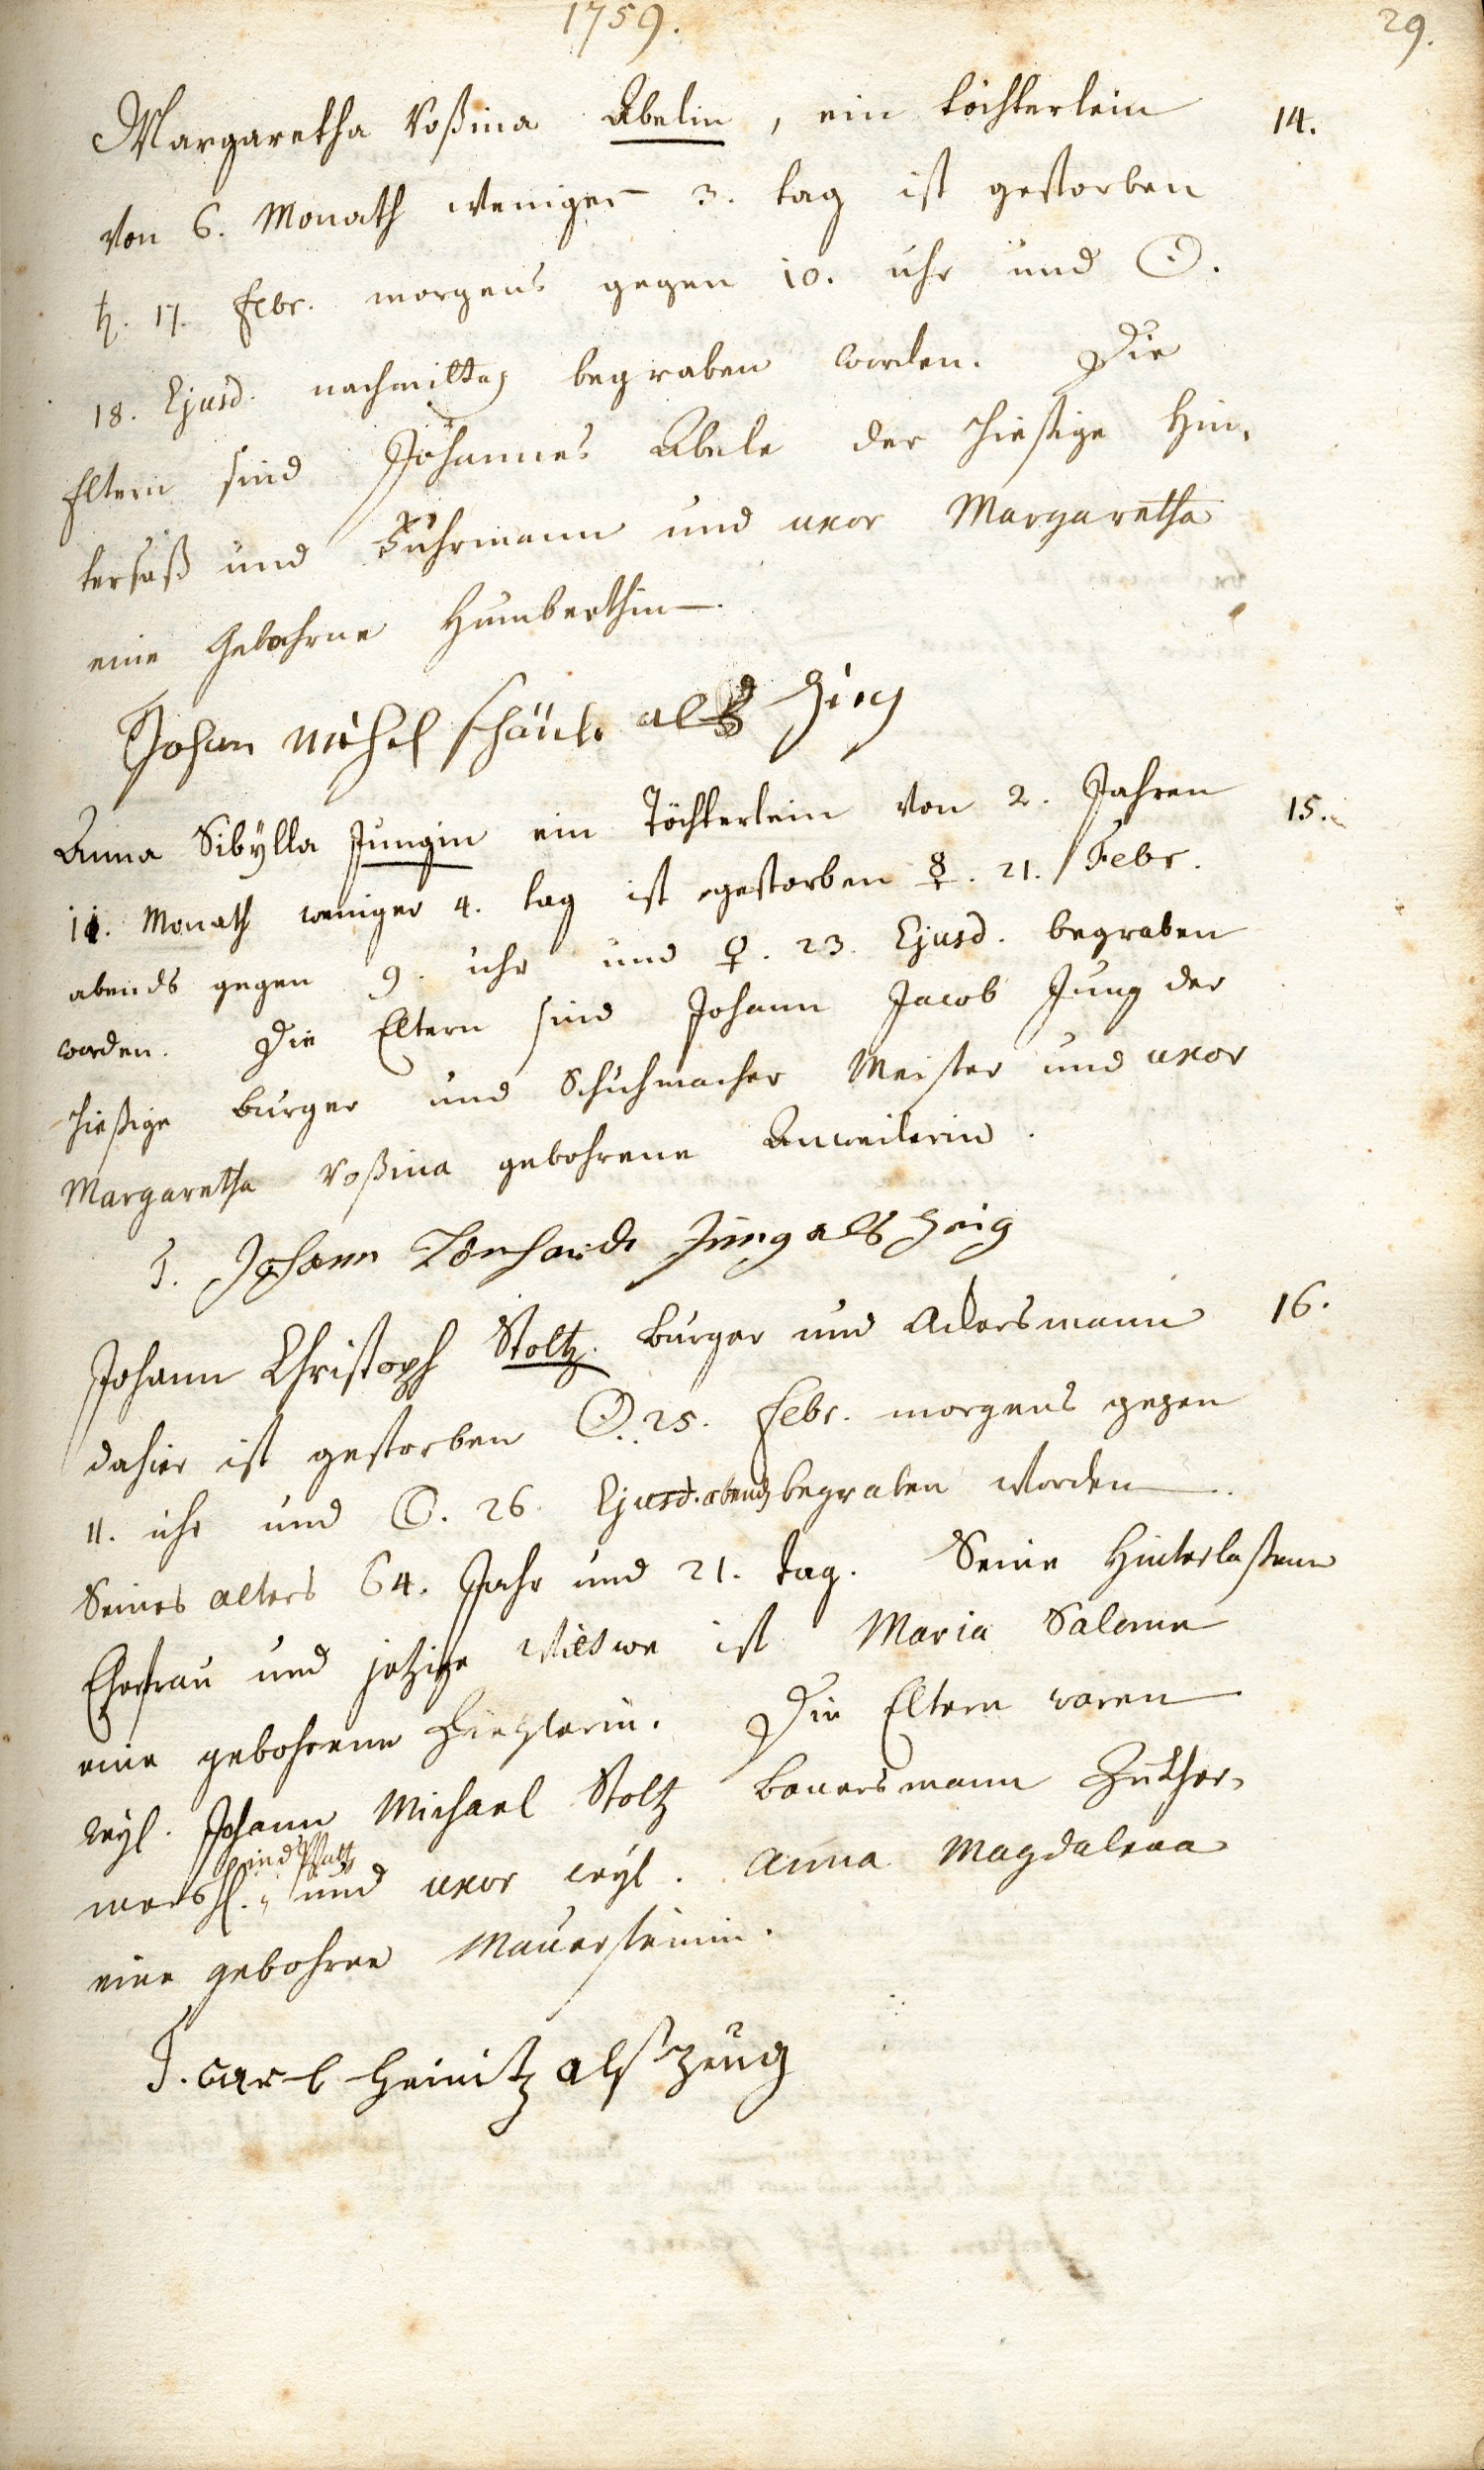 1759.
29.
Margaretha Roßina Abelin, ein töchterlein 14.
von 6. Monath weniger 3. tag ist gestorben
♄. 17. Febr. morgens gegen 10. uhr und ☉.
18. Ejusd. nachmittag begraben worden. Die
Eltern sind Johannes Abele der hießige Hin-
tersaß und Fuhrmann und uxor Margaretha
eine Gebohrne Humberthin.
Johan Michel als Zieg
Anna Sibÿlla Jungin ein Töchterlein von 2. Jahren 15.
11. Monath weniger 4. tag ist gestorben ☿. 21. Febr.
abends gegen 9. uhr und ♀. 23. Ejusd. begraben
worden. Die Eltern sind Johann Jacob Jung der
hießige burger und Schuhmacher Meister und uxor
Margaretha Roßina gebohrene Anweilerin.
J. Johann Lönhardt Jung als Zeig
Johann Christoph Stoltz. burger und Ackersmann 16.
dahier ist gestorben ☉. 25. Febr. morgens gegen
11. uhr und ☾. 26. Ejusd. abends begraben worden.
Seines alters 64. Jahr und 21. tag. Seine Hinterlaßene
Ehefrau und jetzige Wittwe ist Maria Salome
eine gebohrene Zieglerin. Die Eltern waren
weyl. Johann Michael Stoltz bauersmann
und uxor weyl. Anna Magdalena
eine gebohrne Mauersteinin.
J. Carl Heinitz alß zeüg